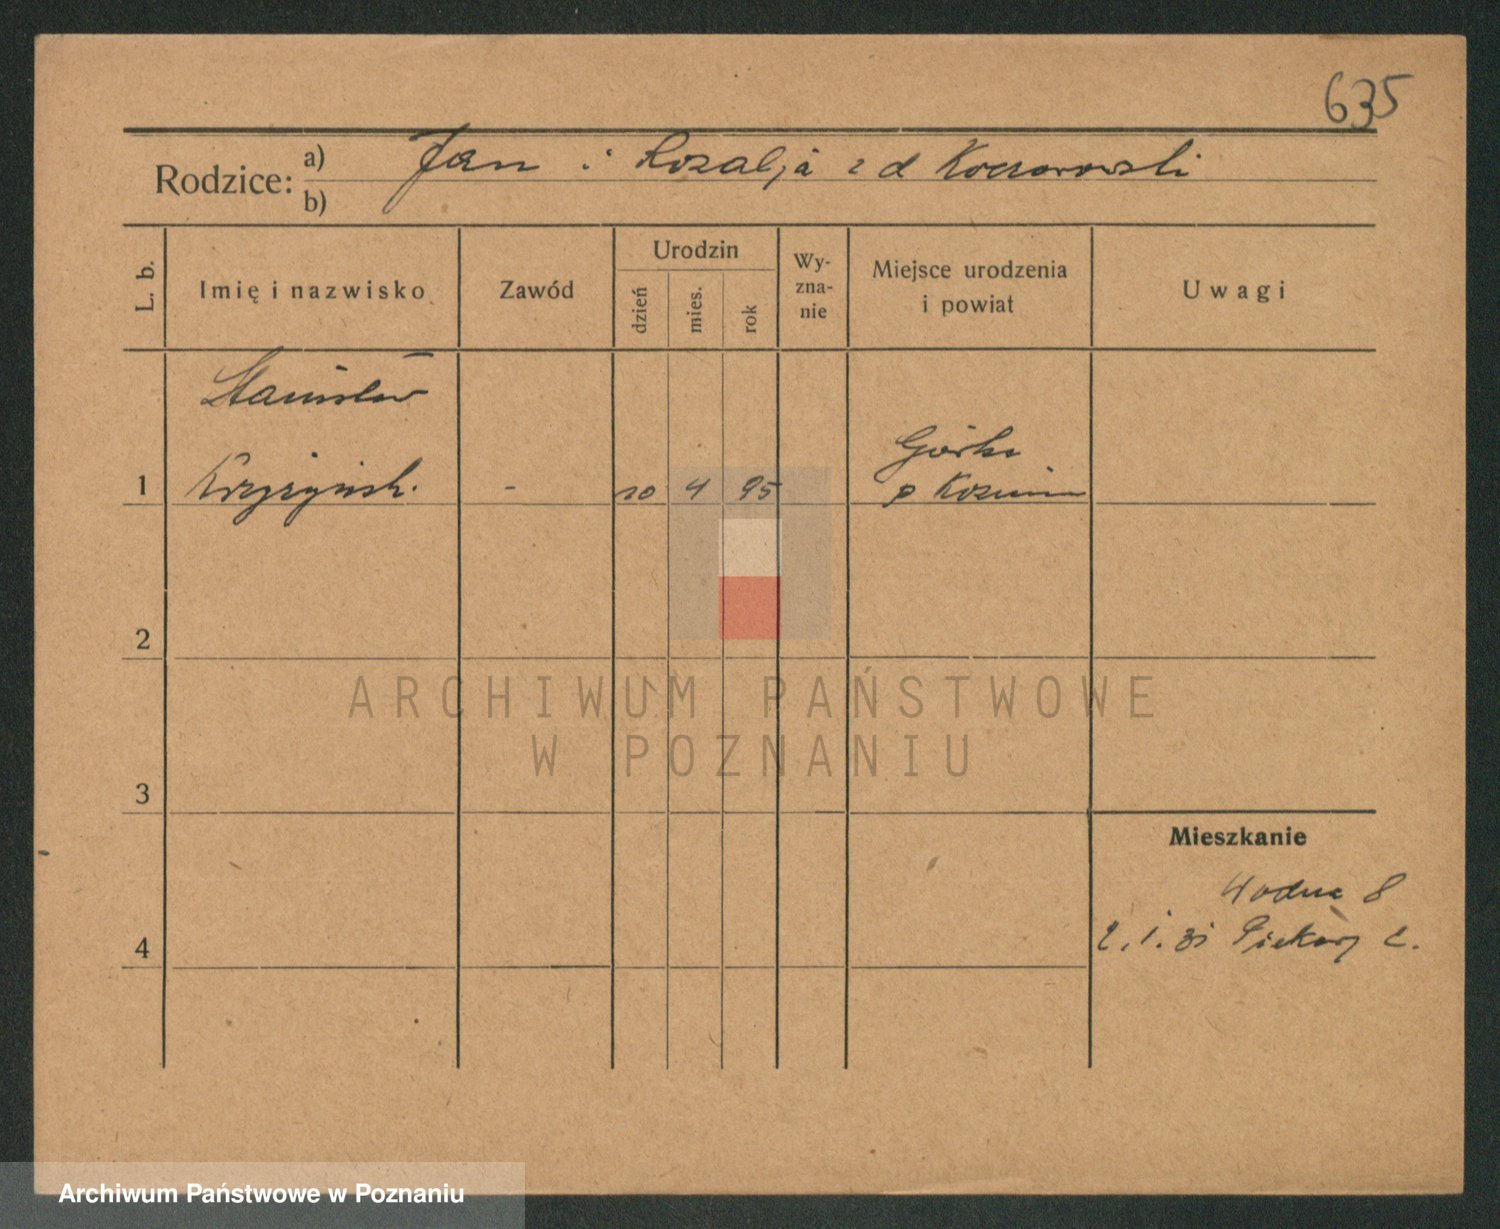 635
Rodzice:
a) Jan i Rozalja z d Koczorowski
b)
L. b.
Imię i nazwisko
Zawód
Urodzin
dzień
mies.
rok
Wy-
zna-
nie
Miejsce urodzenia
i powiat
Uwagi
Stanisław
Górka
1 Krzyżyński - 10 4 95 p Koźmin
2
ARCHIWUM PAŃSTWOWE
W POZNANIU
3
Mieszkanie
Wodna 8
2.1.31 Piekary
4
Archiwum Państwowe w Poznaniu